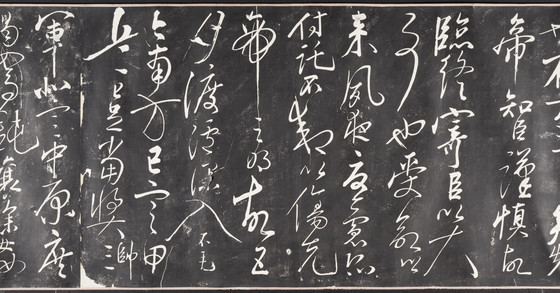 帝知臣謹慎故
臨終寄臣以大
事也受命以
來夙夜憂慮恐
付託不效以傷先
帝之明故五
月渡瀘深入不毛
今南方已定甲
兵已足當獎帥三
軍北定中原庶
竭駑鈍攘除姦